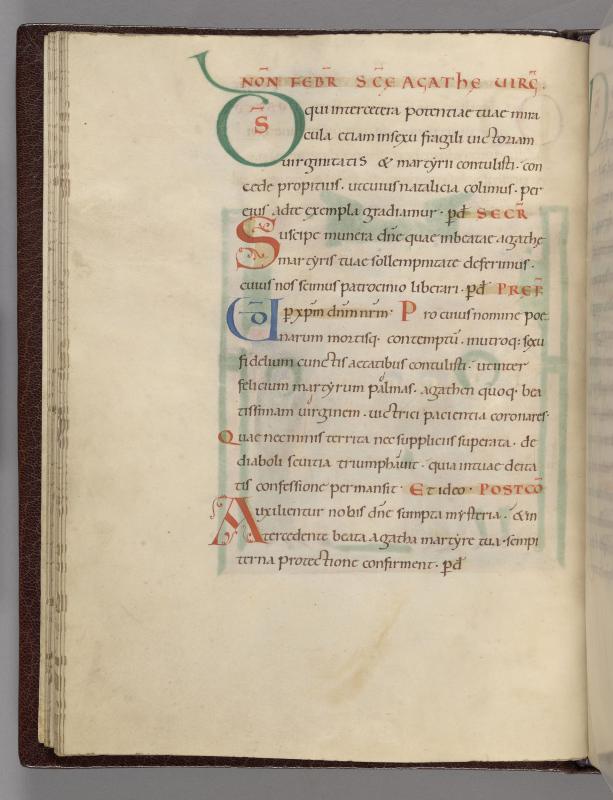 NON̄ FEBR̄ SC̄E AGATHE UIRG̅.
D̄S qui inter cetera potentiae tuae mira
cula etiam in sexu fragili uictoriam
uirginitatis & martyrii contulisti · con
cede propitius · ut cuius natalicia colimus · per
eius ad te exempla gradiamur · p̲d̅ SECR̄
Suscipe munera dn̄e quae in beatae agathe
martyris tuae sollempnitate deferimus ·
cuius nos scimus patrocinio liberari · p̲d̅ PREF̄
UD̄ p̲ xp̅m dn̅m nr̅m · Pro cuius nomine poe
narum mortisq · contemptū · in utroq; sexu
fidelium cunctis aetatibus contulisti · ut inter
felicium martyrum palmas · agathen quoq; bea
tissimam uirginem · uictrici pacientia coronares ·
Quae nec minis territa nec suppliciis superata · de
diaboli seuitia triumphauit · quia in tuae deita
tis confessione permansit · Et ideo · POSTCŌ
Auxilientur nobis dn̄e sumpta mysteria · & in
tercedente beata agatha martyre tua · sempi
terna protectione confirment · p̲d̅